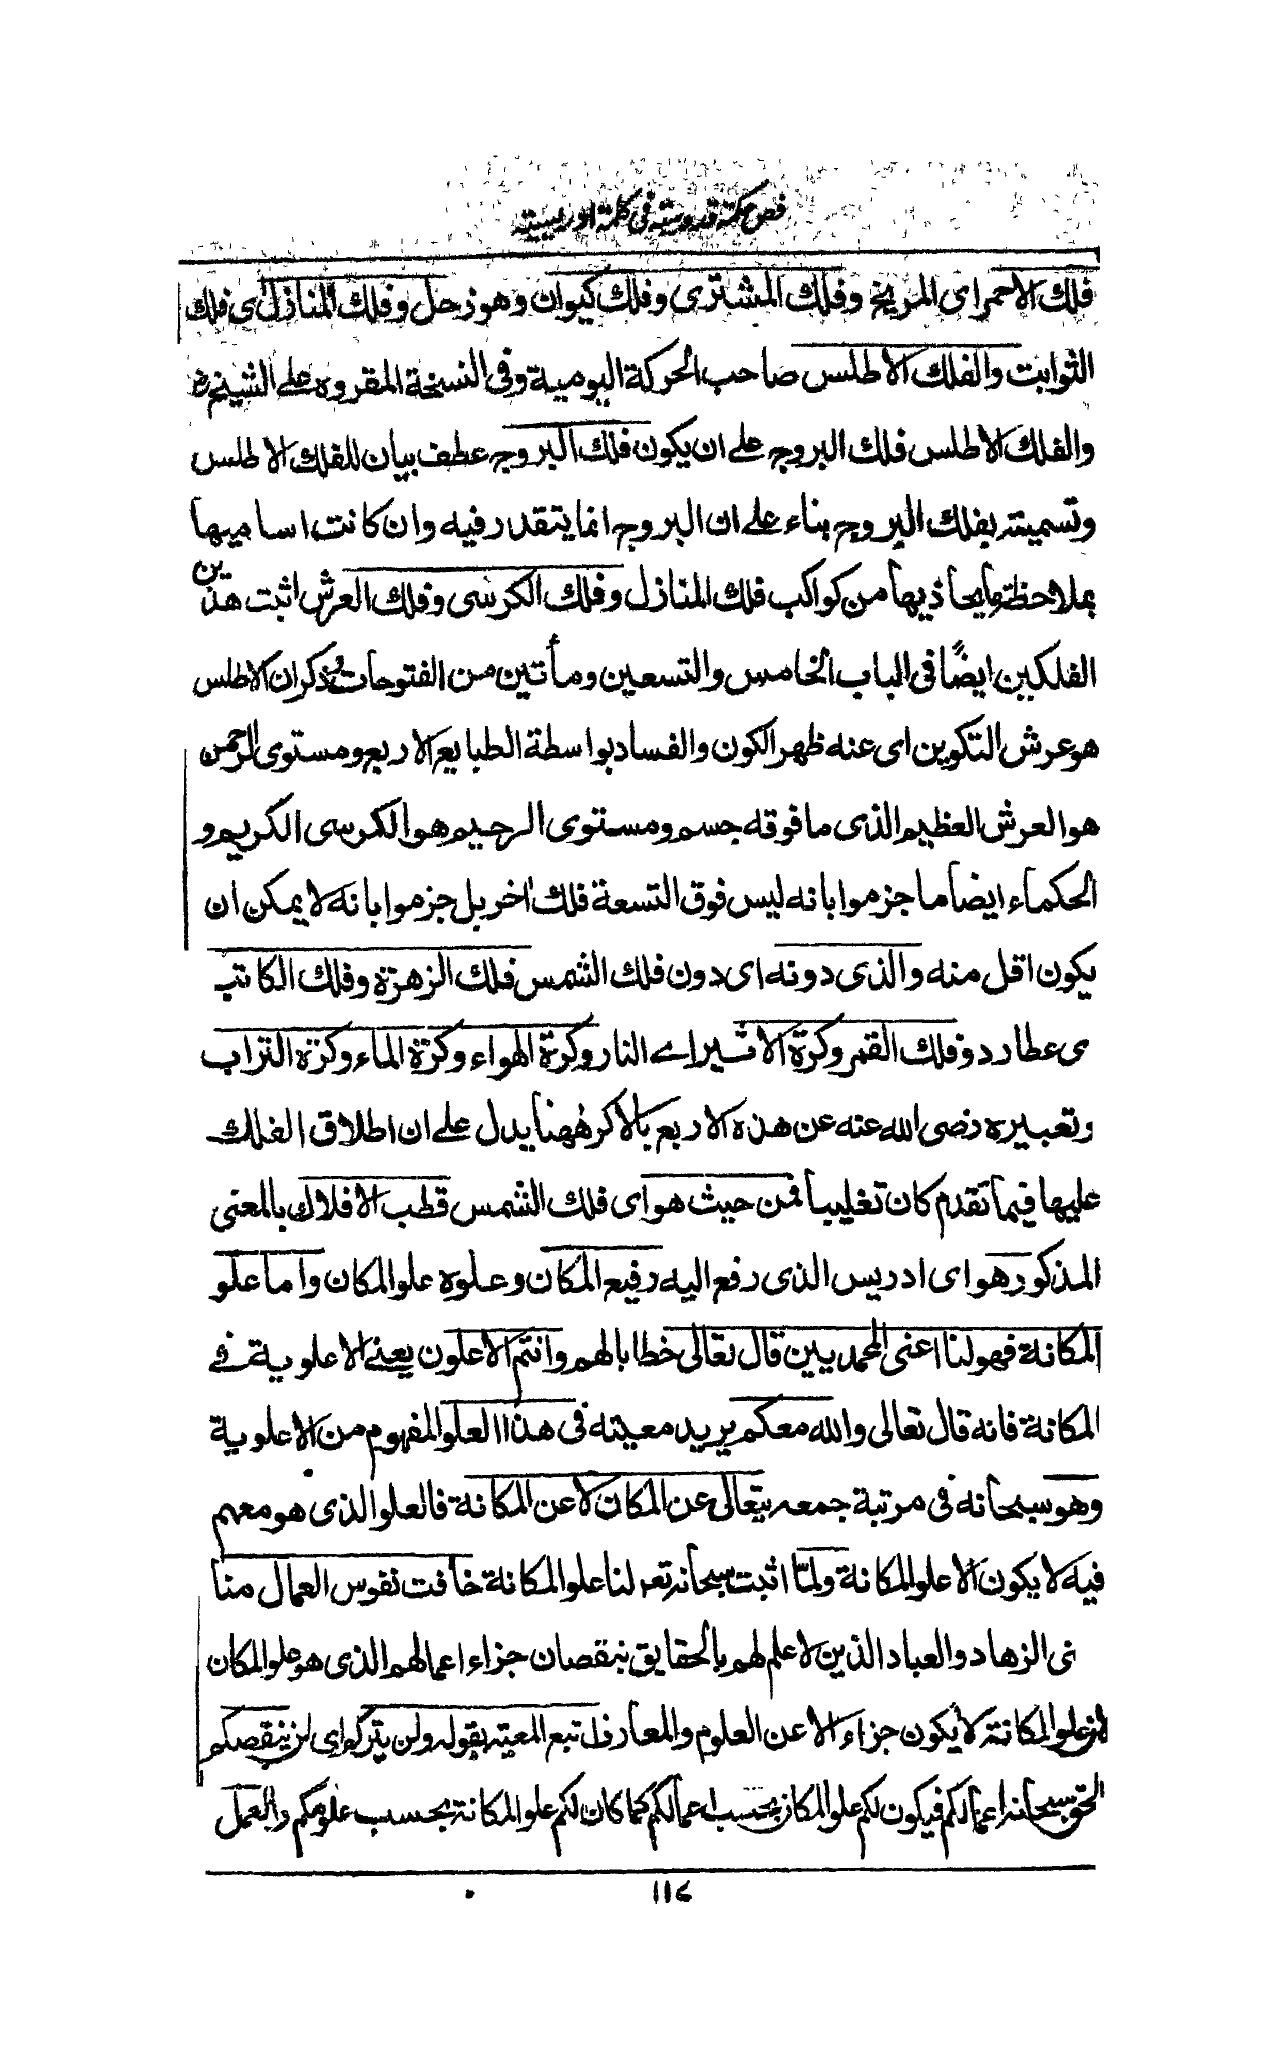 فص حكمة قدوسية فى كلمة ادريسية
فلك الاحمر اى المريخ وفلك المشترى وفلك كيوان وهو زحل وفلك المنازل اى فلك
الثوابت والفلك الاطلس صاحب الحركة اليومية وفى النسخة المقروه على الشيخ رض
والفلك الاطلس فلك البروج على ان يكون فلك البروج عطف بيان للفلك الاطلس
وتسميته بفلك البروج بناء على ان البروج انما يتقدر فيه وان كانت اساميها
بملاحظة ما يحاذيها من كواكب فلك المنازل وفلك الكرسى وفلك العرش اثبت هذين
الفلكين ايضًا فى الباب الخامس والتسعين ومأتين من الفتوحات وذكر ان الاطلس
هو عرش التكوين اى عنه ظهر الكون والفساد بواسطة الطبايع الاربع ومستوى الرحمن
هو العرش العظيم الذى ما فوقه جسم ومستوى الرحيم هو الكرسى الكريم و
الحكماء ايضا ما جزموا بانه ليس فوق التسعة فلك اخر بل جزموا بانه لا يمكن ان
يكون اقل منه والذى دونه اى دون فلك الشمس فلك الزهرة وفلك الكاتب
ى عطارد وفلك القمر وكرة الاثير اے النار وكرة الهواء وكرة الماء وكرة التراب
وتعبيره رضى الله عنه عن هذه الاربع بالاكر ههنا يدل على ان اطلاق الفلك
عليها فيما تقدم كان تغليبا فمن حيث هو اى فلك الشمس قطب الافلاك بالمعنى
المذكور هو اى ادريس الذى رفع اليه رفيع المكان وعلوه علو المكان واما علو
المكانة فهو لنا اعنى المحمديين قال تعالى خطابا لهم وانتم الاعلون يعنے الاعلوية فے
المكانة فانه قال تعالى والله معكم يريد معيته فى هذا العلو المفهوم من الاعلوية
وهو سبحانه فى مرتبة جمعه يتعالى عن المكان لا عن المكانة فالعلو الذى هو معهم
فيه لا يكون الا علو المكانة ولمّا اثبت سبحانه تع لنا علو المكانة خافت نفوس العمال منا
نى الزهاد والعباد الذين لا علم لهم بالحقايق بنقصان جزاء اعمالهم الذى هو علو المكان
لان علو المكانة لا يكون جزاء الا عن العلوم والمعارف اتبع المعية بقوله ولن يتركم اى لن ينقصكم
الحق سبحانه اعمالكم فيكون لكم علو المكان بحسب اعمالكم كما كان لكم علو المكانة بحسب علومكم فالعمل
١١٤